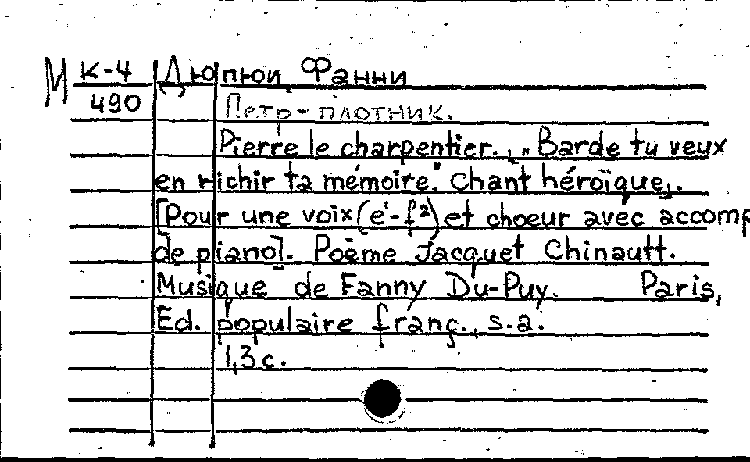 М К-4 Дюпюи, Фанни
490 Петр-плотник.
Pierre le charpentier., „Barde tu veux
en richir ta mémoire." Chant héroïque.,
[Pour une voix (e¹-f²) et choeur avec accomp
de piano]. Poème Jacquet Chinautt.
Musique de Fanny Du-Puy. Paris,
Ed. populaire franç., s.a.
1,3 с.